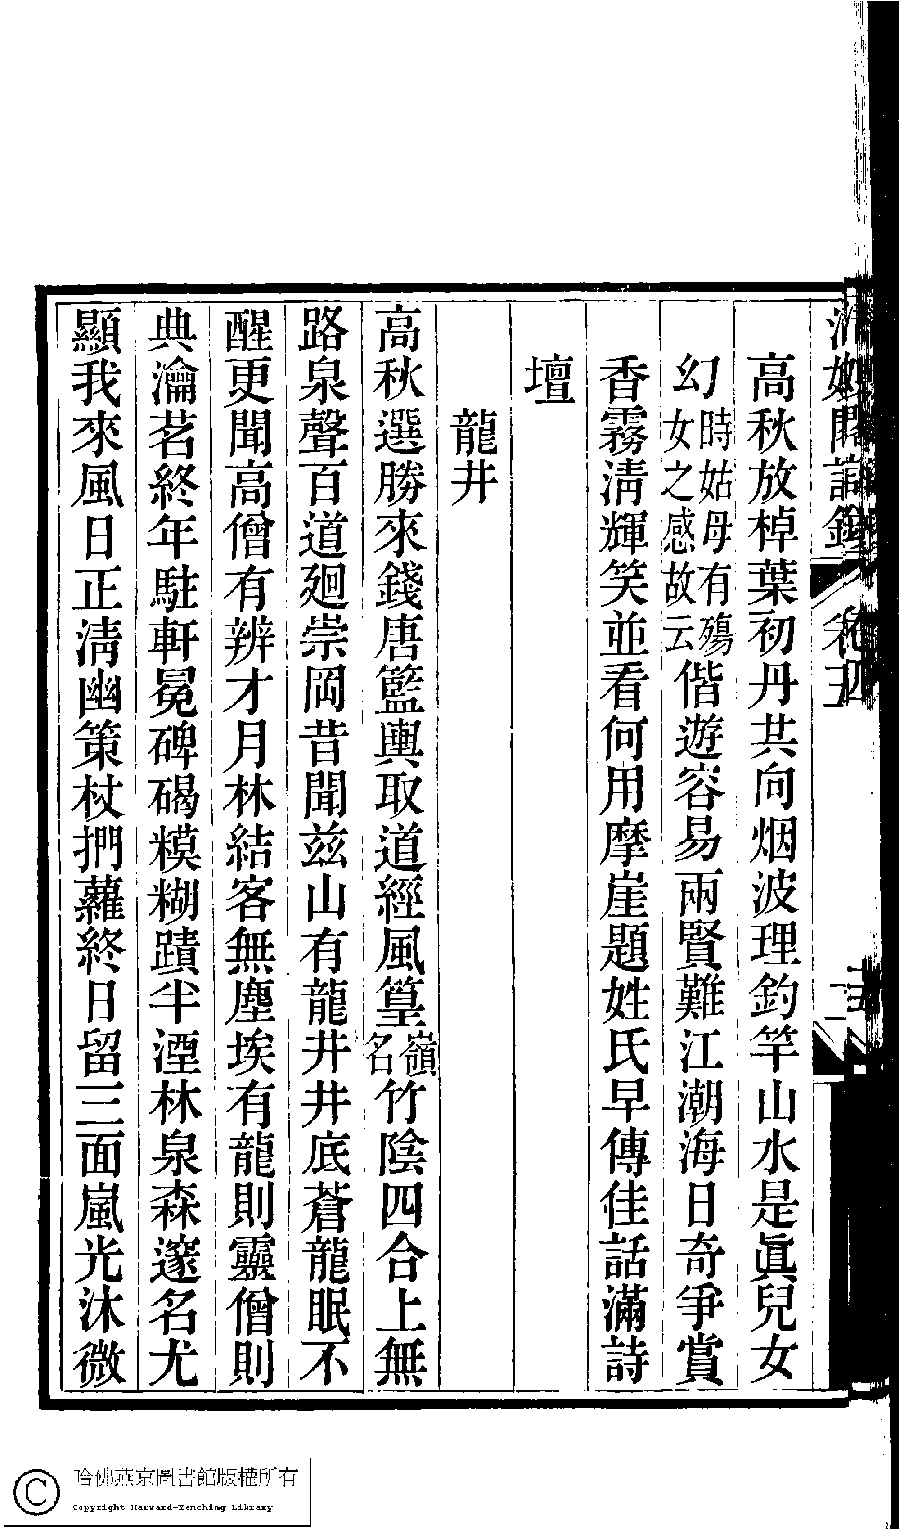 高秋放棹葉初丹共向烟波理釣竿山水是眞兒女
幻時姑母有殤女之感故云偕遊容易兩賢難江潮海日奇爭賞
香霧淸輝笑並看何用摩崖題姓氏早傳佳話滿詩
壇
龍井
高秋選勝來錢唐籃輿取道經風篁嶺名竹陰四合上無
路泉聲百道廻崇岡昔聞兹山有龍井井底蒼龍眠不
醒更聞高僧有辨才月林結客無塵埃有龍則靈僧則
典瀹茗終年駐軒冕碑碣糢糊蹟半湮林泉森邃名尤
顯我來風日正淸幽策杖捫蘿終日留三面嵐光沐微
哈佛燕京圖書館版權所有
Copyright Harvard-Yenching Library